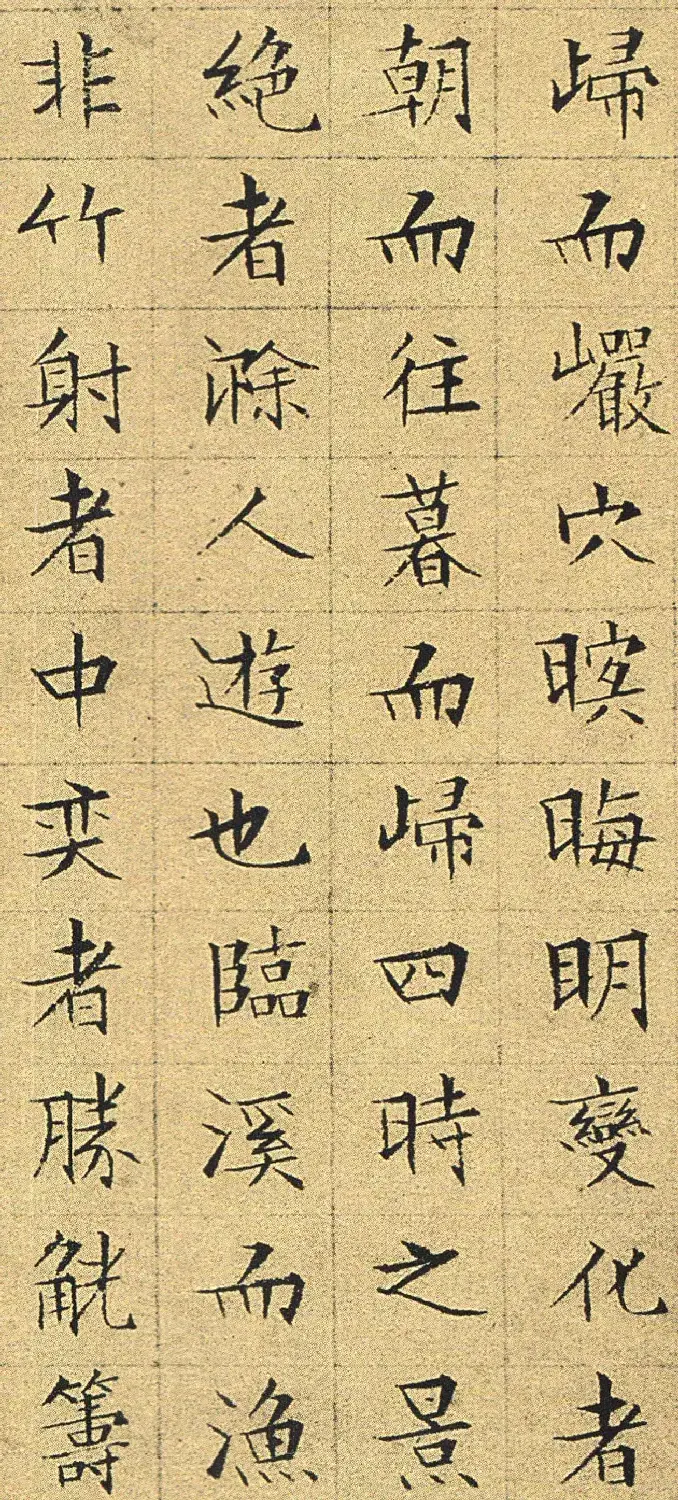 歸而巖穴暝晦明變化者
朝而往暮而歸四時之景
絕者滁人遊也臨溪而漁
非竹射者中奕者勝觥籌